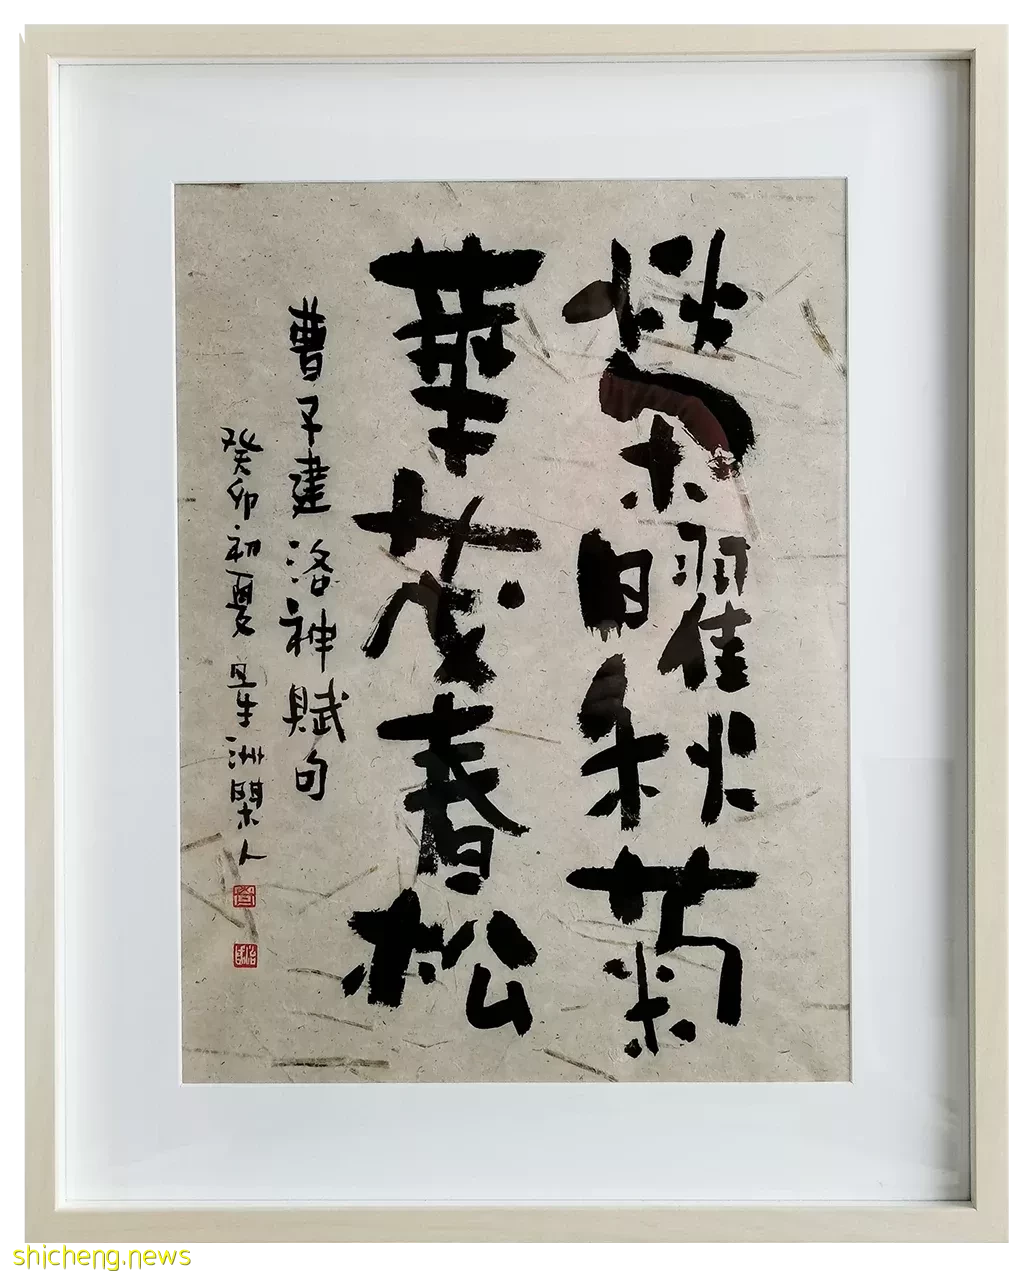 榮曜秋菊
華茂春松
曹子建洛神賦句
癸卯初夏星洲閑人
shicheng.news